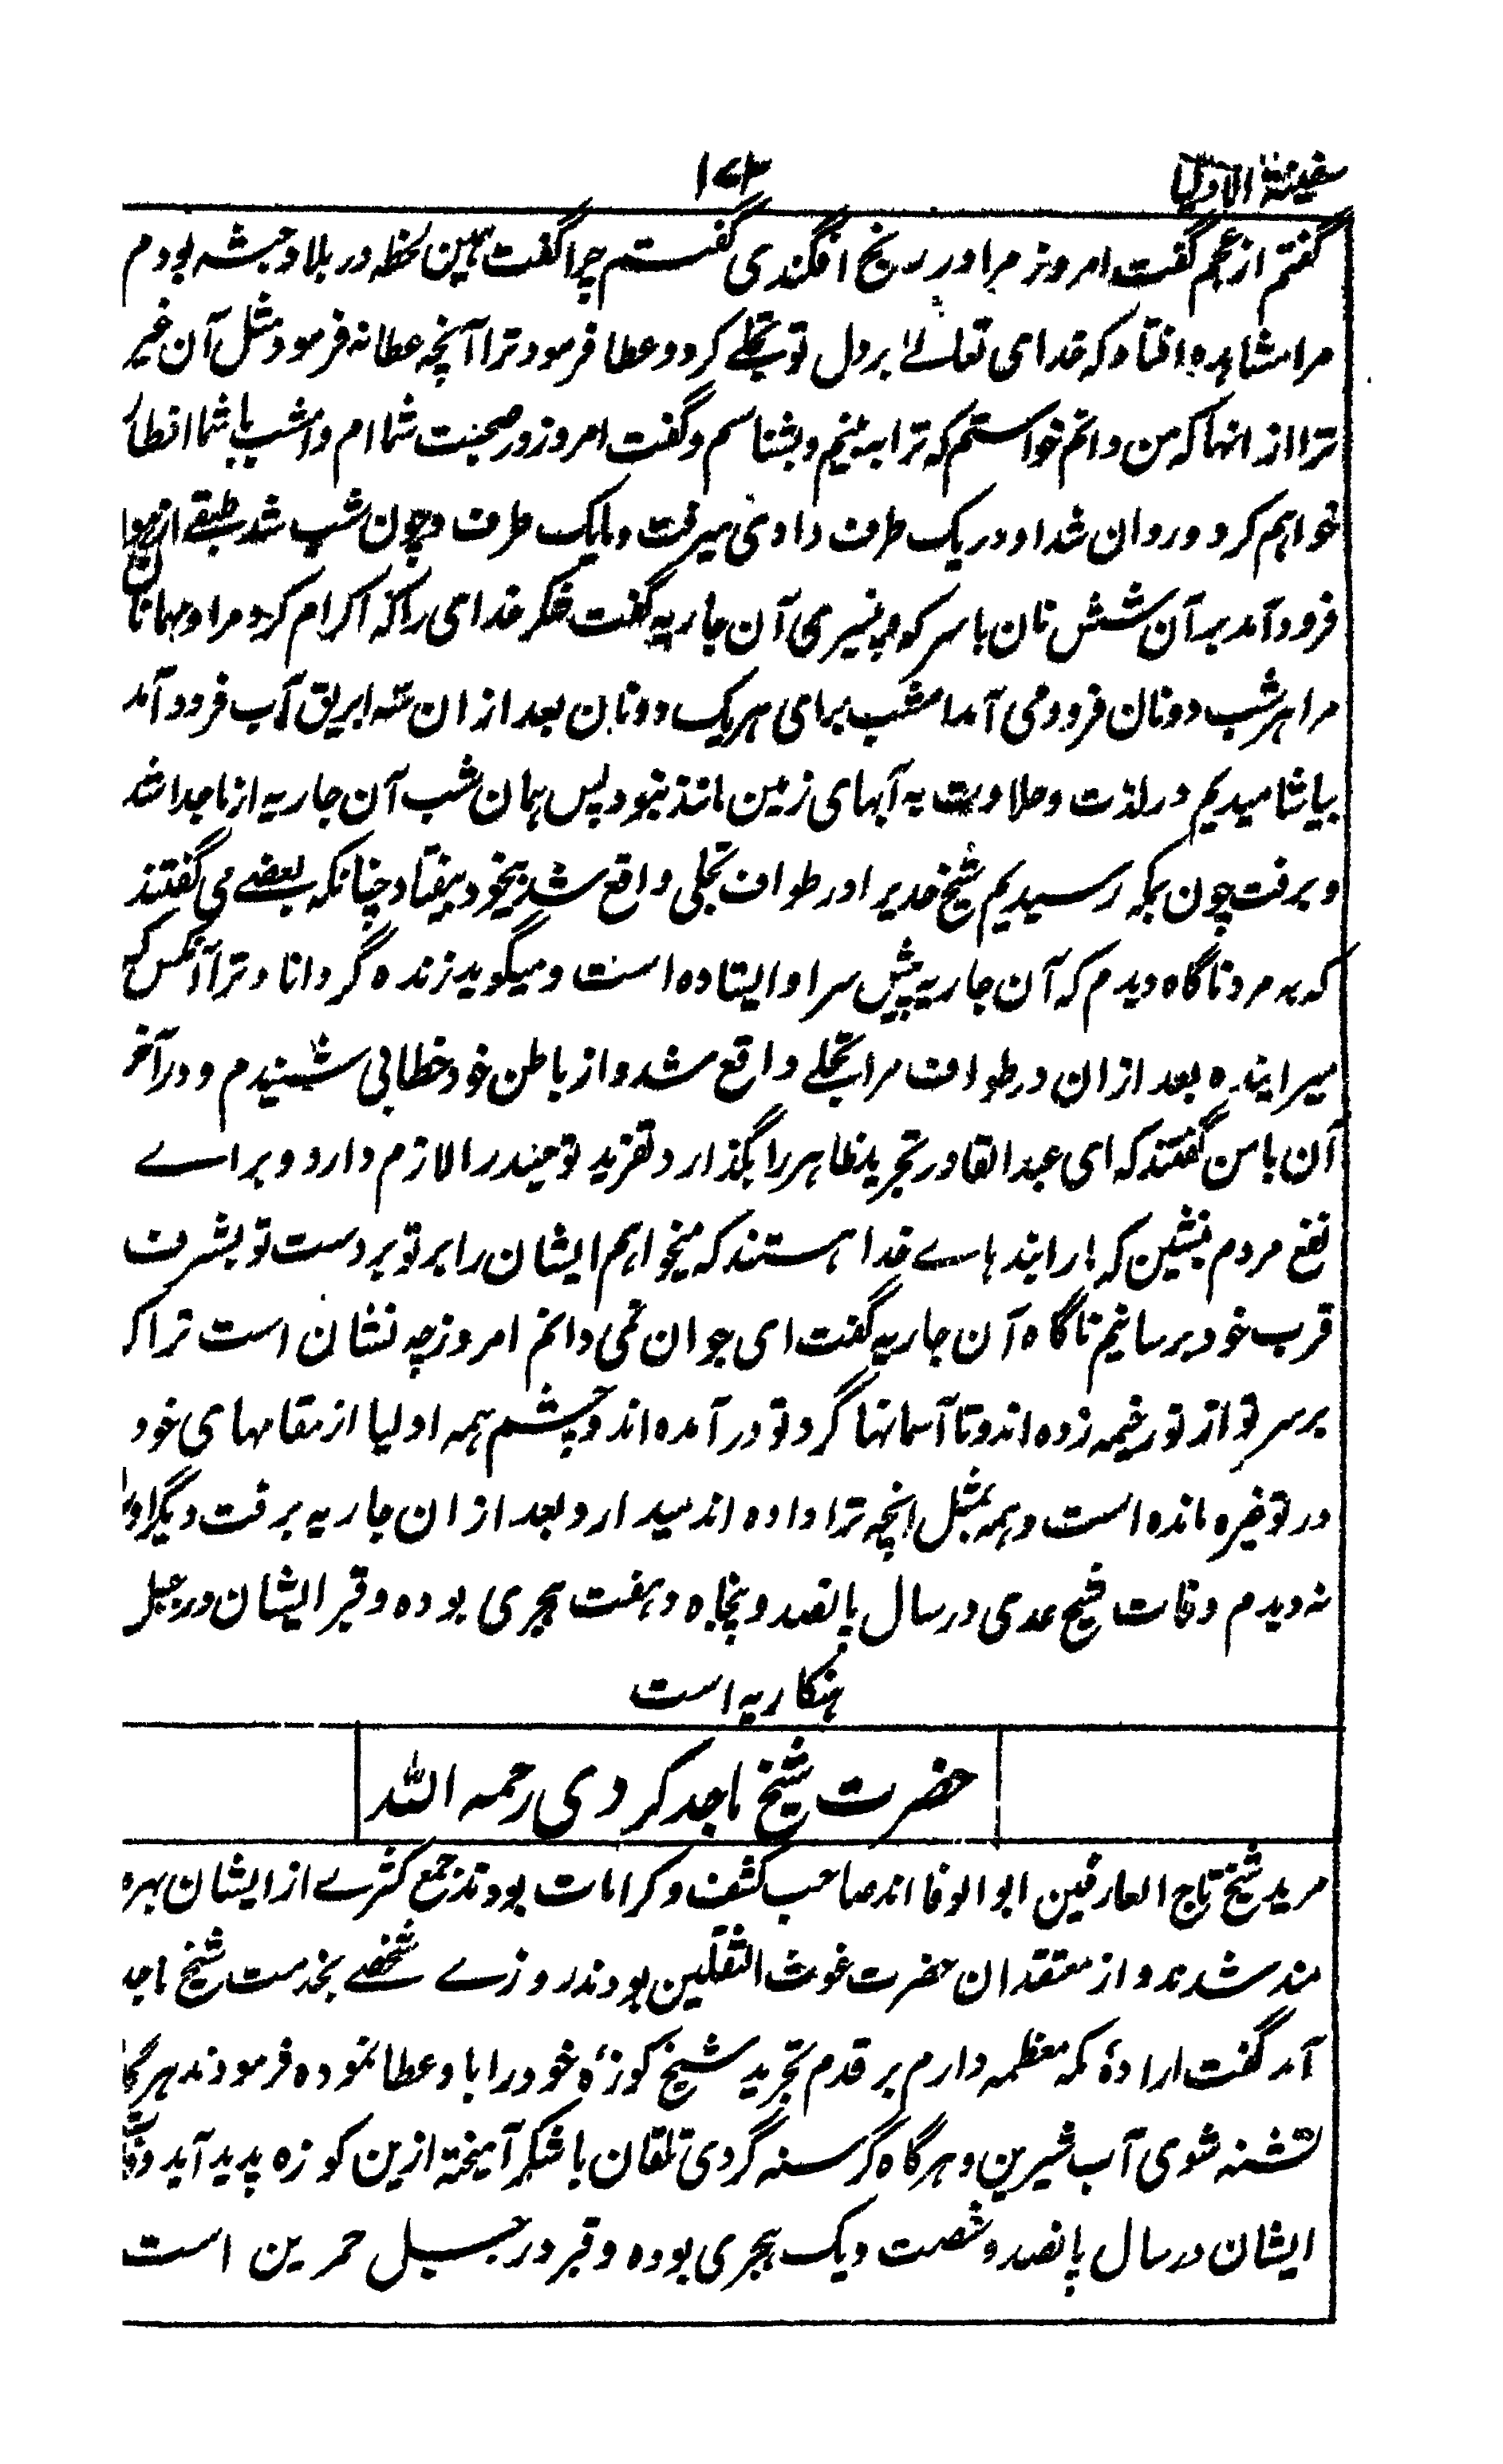 سفینة الاولیا ۱۷۳
گفتم از عجم گفت امروز مرا در رنج افگندی گفتم چرا گفت همین لحظه در بلاد حبشه بودم
مرا مشاهده افتاد که خدای تعالے بر دل تو تجلے کرد و عطا فرمود ترا آنچه عطا نه فرمود مثل آن غیر
ترا از انها که من دانم خواستم که ترا به بینم و بشناسم و گفت امروز در صحبت شما ام و امشب با شما افطا
خواهم کرد و روان شد او در یک طرف وادی میرفت و ما یک طرف و چون شب شد طبقے از
فرود آمد بر آن شش نان با سرکه و پنیری آن جاریه گفت شکر خدای را که اکرام کرد مرا و مهمانان
مرا هر شب دو نان فرود می آمد امشب برای هر یک دو نان بعد از ان سه ابریق آب فرود آمد
بیاشامیدیم در لذت و حلاوت به آبهای زمین مانند نبود پس همان شب آن جاریه از ما جدا شد
و برفت چون بمکه رسیدیم شیخ عدیرا در طواف تجلی واقع شد بیخود بیفتاد چنانکه بعضے می گفتند
که بمرد ناگاه دیدم که آن جاریه پیش سر او ایستاده است و میگوید زنده گرداناد ترا آنکس که
میرانیده بعد ازان در طواف مرا تجلے واقع شد و از باطن خود خطابی شنیدم و در آخر
آن با من گفتند که ای عبد القادر تجرید ظاهر را بگذار و تفرید توحید را لازم دار و براے
نفع مردم بنشین که ما را بندهاے خدا هستند که میخواهیم ایشان را بر تو بر دست تو بشرف
قرب خود برسانیم ناگاه آن جاریه گفت ای جوان نمی دانم امروز چه نشان است ترا که
بر سر تو از نور خیمه زده اند و تا آسمانها گرد تو در آمده اند و چشم همه اولیا از مقامهای خود
در تو خیره مانده است و همه بمثل انچه ترا داده اند امیدوارد بعد از ان جاریه برفت دیگر اورا
نه دیدم وفات شیخ عدی در سال پانصد و پنجاه و هفت هجری بوده و قبر ایشان در جبل
هنکاریه است
حضرت شیخ ماجد کردی رحمه الله
مرید شیخ تاج العارفین ابو الوفا اند صاحب کشف و کرامات بودند جمع کثرے از ایشان بهره
مند شدند و از معتقدان حضرت غوث الثقلین بودند روزے شخصے بخدمت شیخ ماجد
آمد گفت ارادۀ مکه معظمه دارم بر قدم تجرید شیخ کوزۀ خود را باو عطا نموده فرمودند هر گاه
تشنه شوی آب شیرین و هرگاه گرسنه گردی تلقان با شکر آمیخته ازین کوزه پدید آید وفات
ایشان در سال پانصد و شصت و یک هجری بوده و قبر در جبل حمرین است